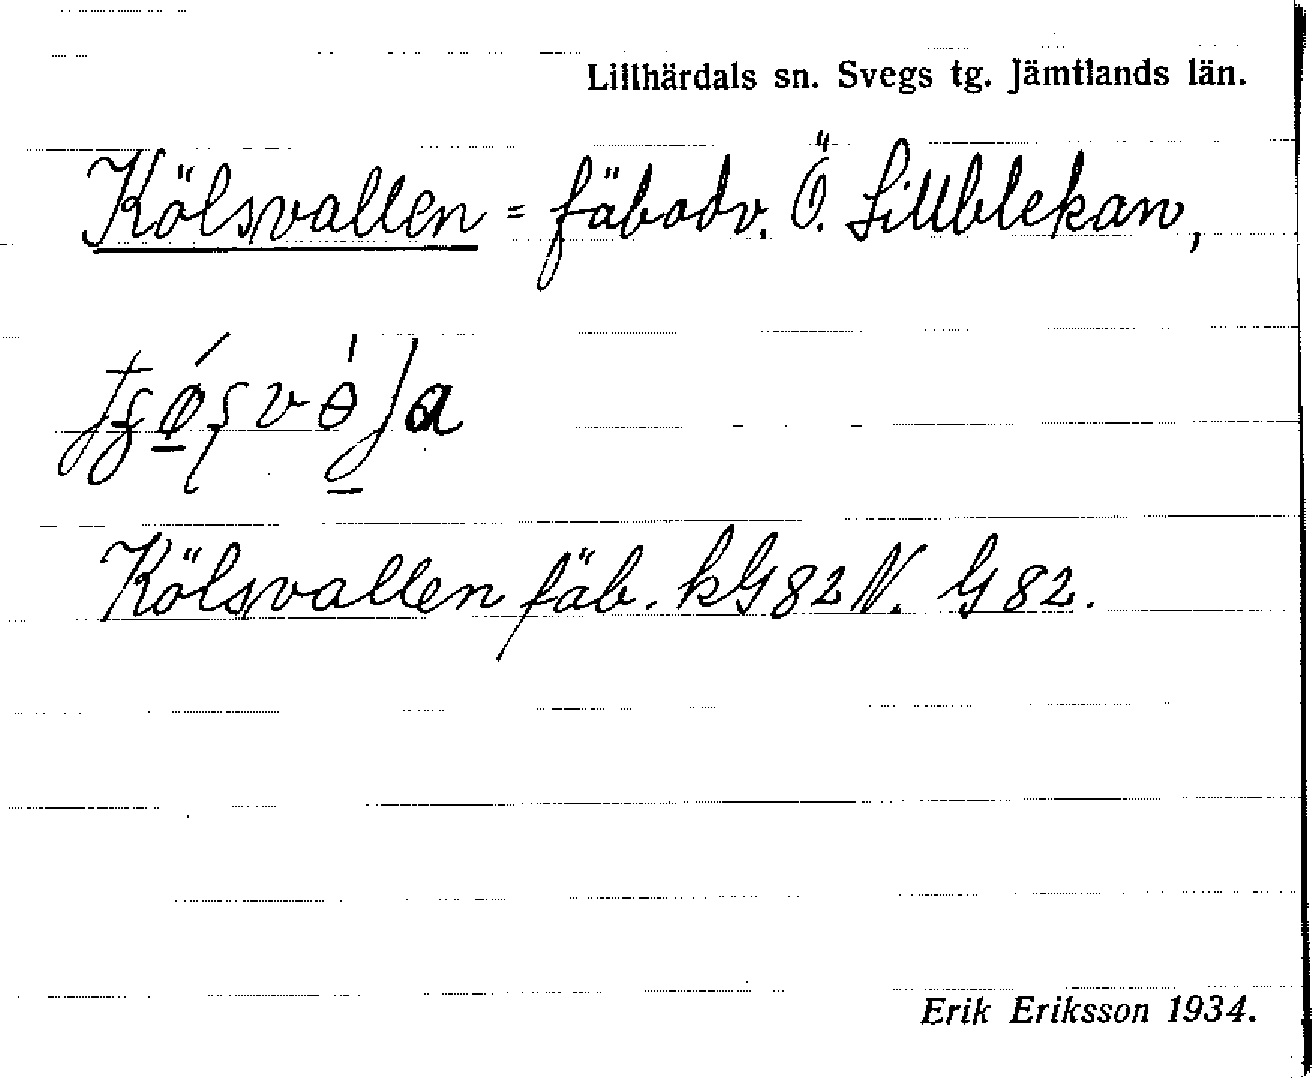 Lillhärdals sn. Svegs tg. Jämtlands län.
Kölsvallen = fäbodv. Ö. Lillblekan,
Kölsvallen fäb. kG82N. G82.
Erik Eriksson 1934.